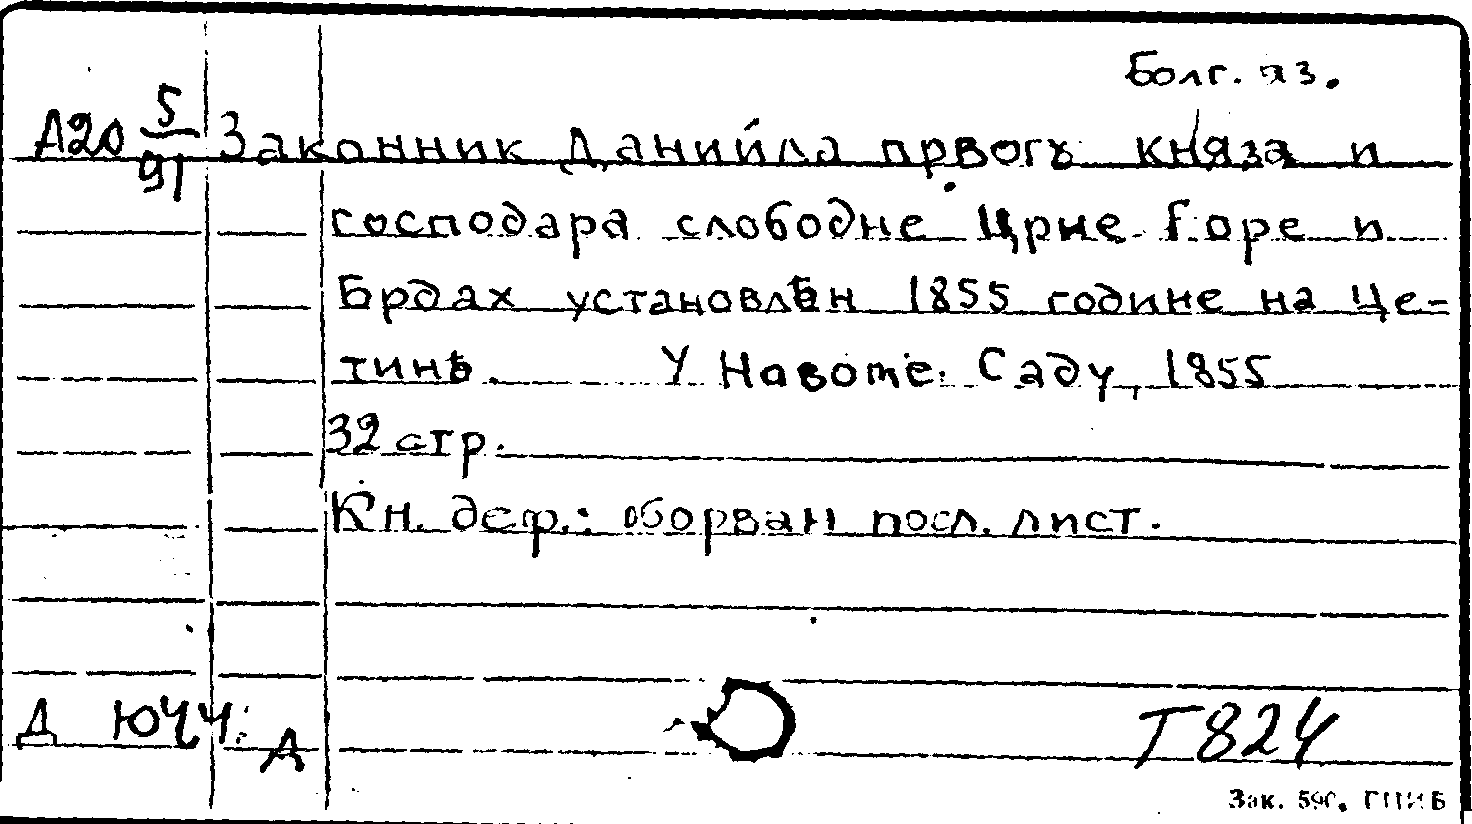 Болг. яз.
А20 5/91 Законник Данийла првогъ княза и
господара слободне Црне Горе и
Брдах установлѣн 1855 године на Це-
тинѣ. У Новоме Саду, 1855
32 стр.
Кн. деф.: оборван посл. лист.
Д Ю44. А
Т824
Зак. 590, ГПИБ